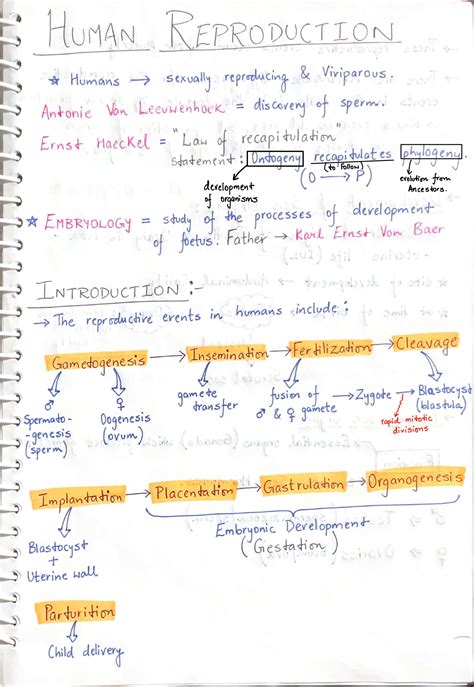 HUMAN REPRODUCTION
☆ Humans → sexually reproducing & Viviparous.
Antonie Von Leeuwenhoek = discovery of sperm.
Ernst Haeckel = "Law of recapitulation"
Statement : Ontogeny recapitulates phylogeny.
(to follow)
(O → P)
development of organisms
evolution from Ancestors.
☆ EMBRYOLOGY = study of the processes of development
of foetus. Father → Karl Ernst Von Baer
INTRODUCTION :-
→ The reproductive events in humans include :
Gametogenesis → Insemination → Fertilization → Cleavage
♂ Spermato-genesis (sperm)
♀ Oogenesis (ovum)
gamete transfer
fusion of ♂ & ♀ gamete → Zygote → Blastocyst (blastula)
rapid mitotic divisions
Implantation → Placentation → Gastrulation → Organogenesis
Blastocyst + Uterine wall
Embryonic Development
(Gestation)
Parturition
Child delivery